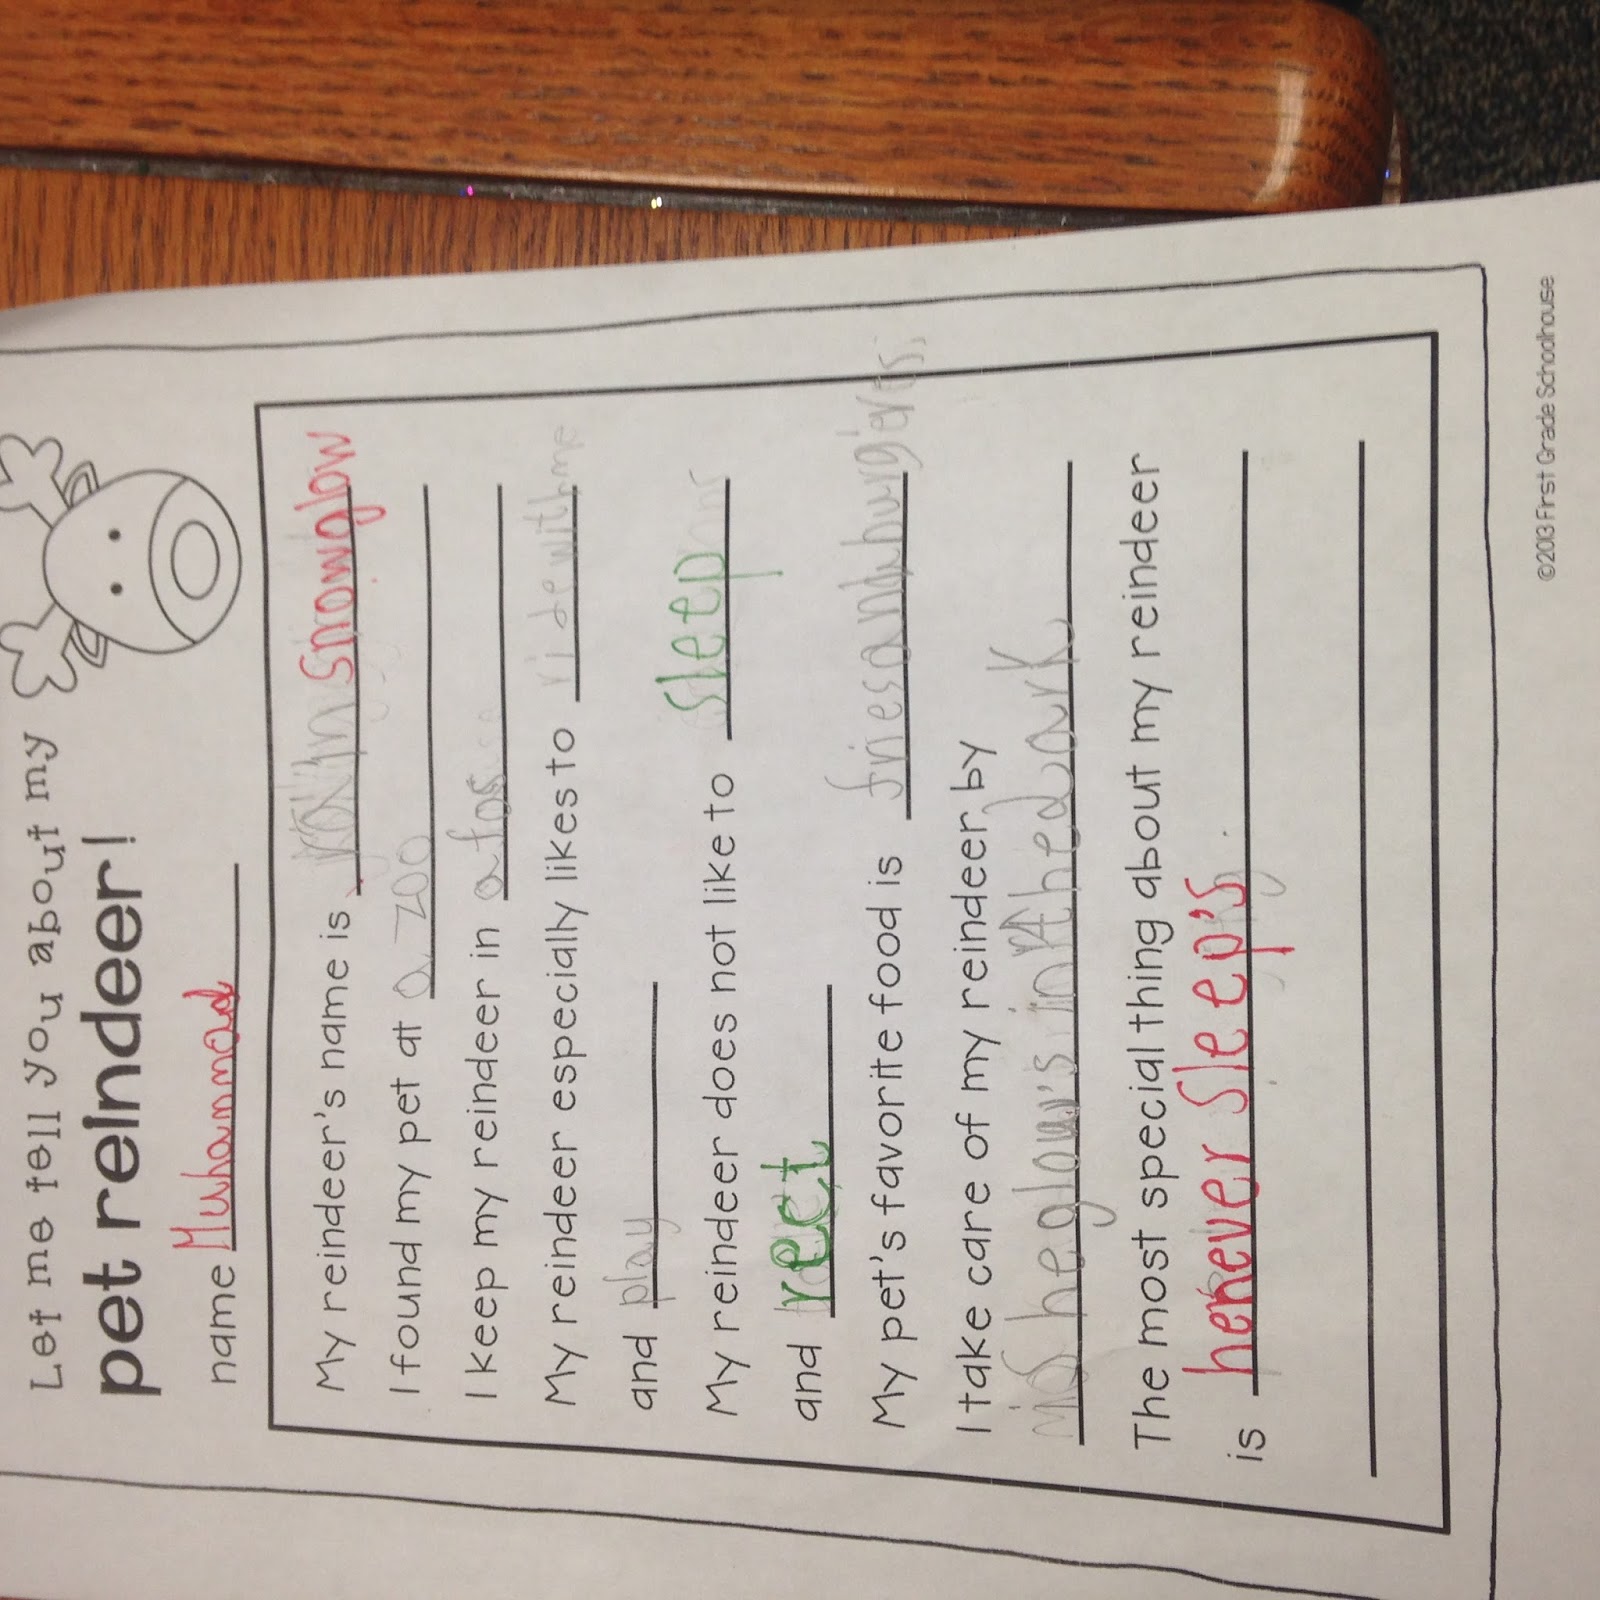 Let me tell you about my
pet reindeer!
name Muhammad
My reindeer's name is Snowglow
I found my pet at a zoo
I keep my reindeer in
My reindeer especially likes to ride with me
and play
My reindeer does not like to sleep
and reet
My pet's favorite food is friesandhung'ers.
I take care of my reindeer by
he glow's in thedark
The most special thing about my reindeer
is henever sleep's
©2013 First Grade Schoolhouse